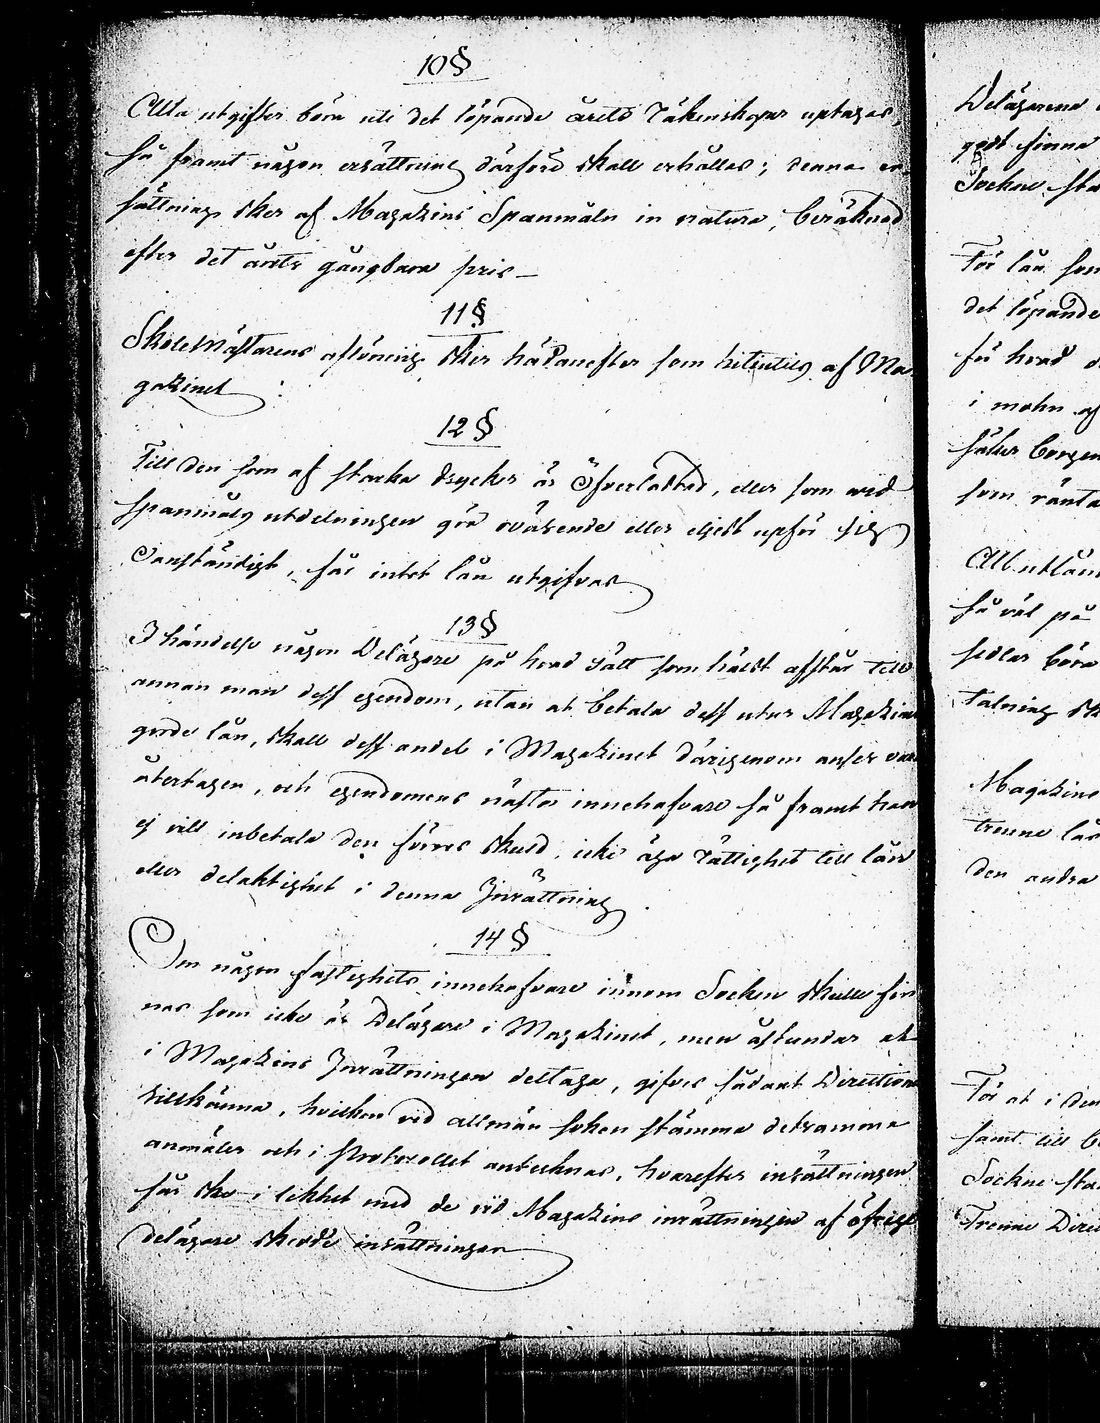 10 §
Alla utgifter böra uti det löpande årets Räkenskaper uptagas,
så framt någon ersättning därföre skall erhållas; denna er
sättning sker af Magazins Spanmåln in natura, beräknad
efter det årets gångbara pris
11 §
Skolemästarens aflöning sker hädanefter som hitintils af Ma
gazinet
12 §
Till den som af starka drycker är Öfverlastad, eller som wid
spanmåls utdelningen gör oväsende eller eljest upför sig
Oanständigt, får intet lån utgifvas
13 §
I händelse någon Delägare på hvad sätt som hälst afstår till
annan man dess egendom, utan at betala dess utur Magazinet
gorde lån, skall dess andel i Magazinet därigenom anses vara
återtagen, och egendomens näste innehafvare så framt han
ej vill inbetala den förres skuld, icke äga rättighet till lån
eller delaktighet i denna Inrättning.
14 §
Om någon fastighets innehafvare innom Socken skulle fin
nas som icke är Delägare i Magazinet, men åstundar at
i Magazins Inrättningen deltaga, gifves sådant Directionen
tillkänna, hvilken vid allmän soken stämma detsamma
anmäler och i Protocollet antecknas, hvarefter insättningen
får ske i likhet med de vid Magazins inrättningen af öfrige
delägare skedde insättningar
Delägarena
godt finna
Sockne sta
För lån som
det löpande
få hvad
i mohn af
säker borgen
som ränta
All utlån
så väl på
sedlar böra
talning sk
Magazins
trenne lås
den andra
För at i den
samt till
Sockne sta
Trenne Direc